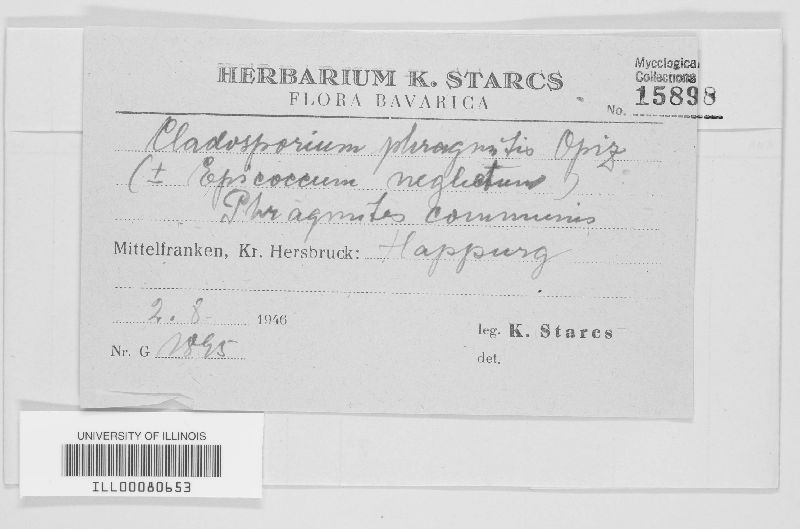 HERBARIUM K. STARCS
FLORA BAVARICA
Mycological
Collections
No. 15898
Cladosporium phragmitis Opiz
(± Epicoccum neglectum)
Phragmites communis
Mittelfranken, Kr. Hersbruck: Happurg
2. 8. 1946
Nr. G 1895
leg. K. Starcs
det.
UNIVERSITY OF ILLINOIS
ILL00080653